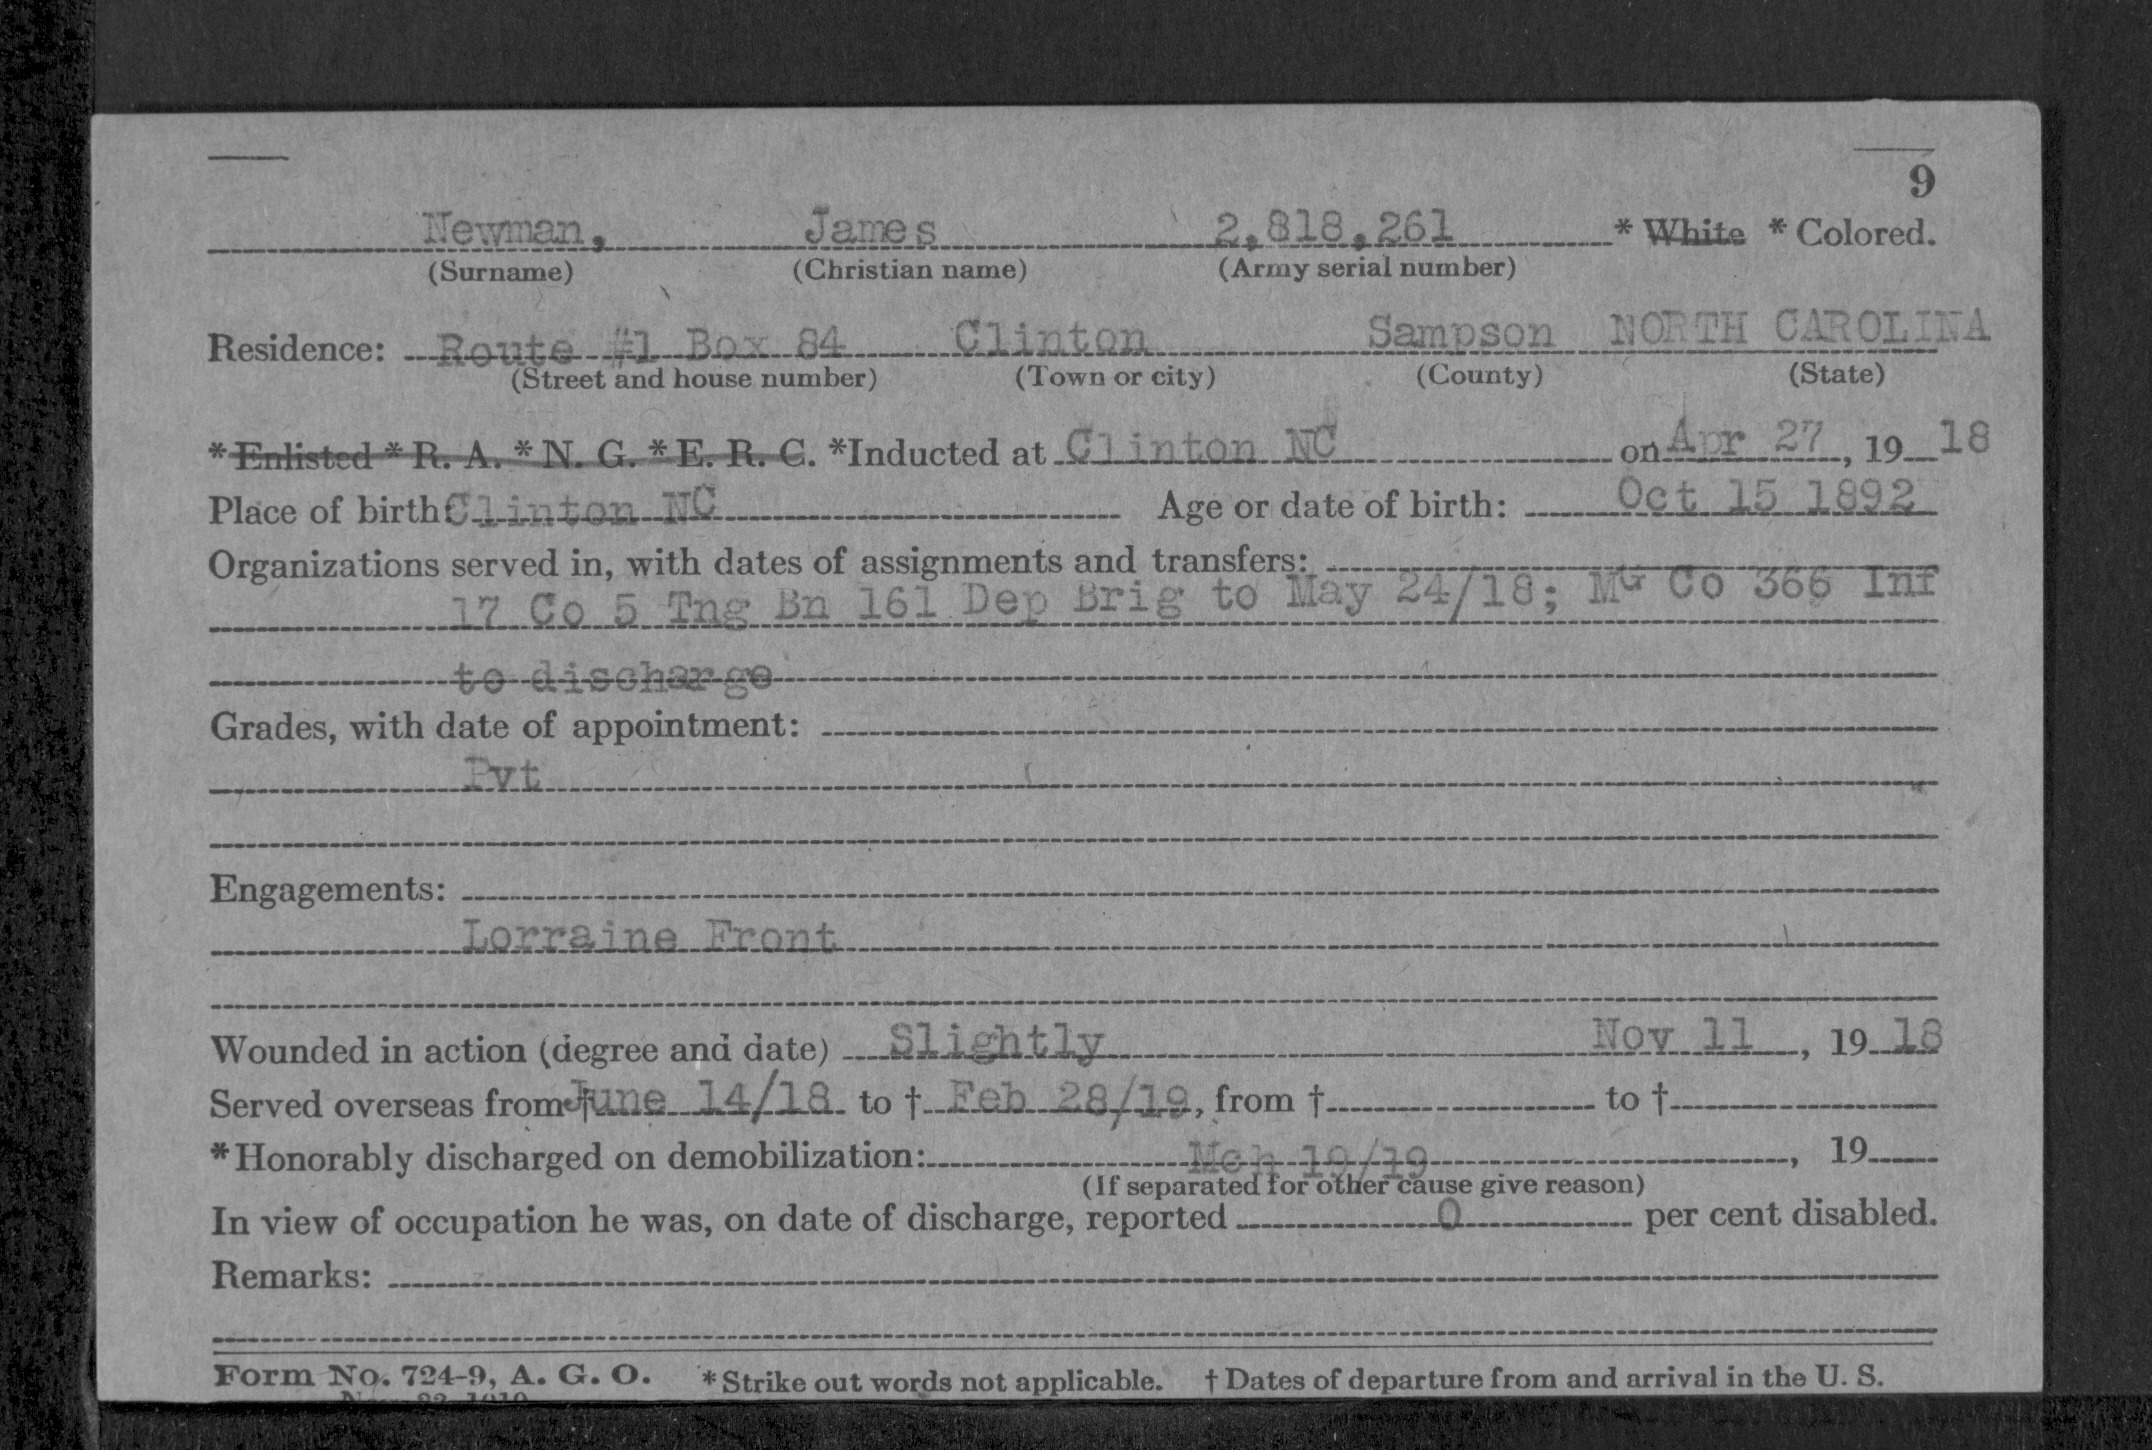 9
Newman, James 2,818,261 * White * Colored.
(Surname) (Christian name) (Army serial number)
Residence: Route #1 Box 84 Clinton Sampson NORTH CAROLINA
(Street and house number) (Town or city) (County) (State)
* Enlisted * R. A. * N. G. * E. R. C. *Inducted at Clinton NC on Apr 27, 19 18
Place of birth Clinton NC Age or date of birth: Oct 15 1892
Organizations served in, with dates of assignments and transfers:
17 Co 5 Tng Bn 161 Dep Brig to May 24/18; MG Co 366 Inf
to discharge
Grades, with date of appointment:
Pvt
Engagements:
Lorraine Front
Wounded in action (degree and date) Slightly Nov 11, 19 18
Served overseas from † June 14/18 to † Feb 28/19, from † to †
* Honorably discharged on demobilization: Mch 19/19, 19
(If separated for other cause give reason)
In view of occupation he was, on date of discharge, reported 0 per cent disabled.
Remarks:
Form No. 724-9, A. G. O. * Strike out words not applicable. † Dates of departure from and arrival in the U. S.